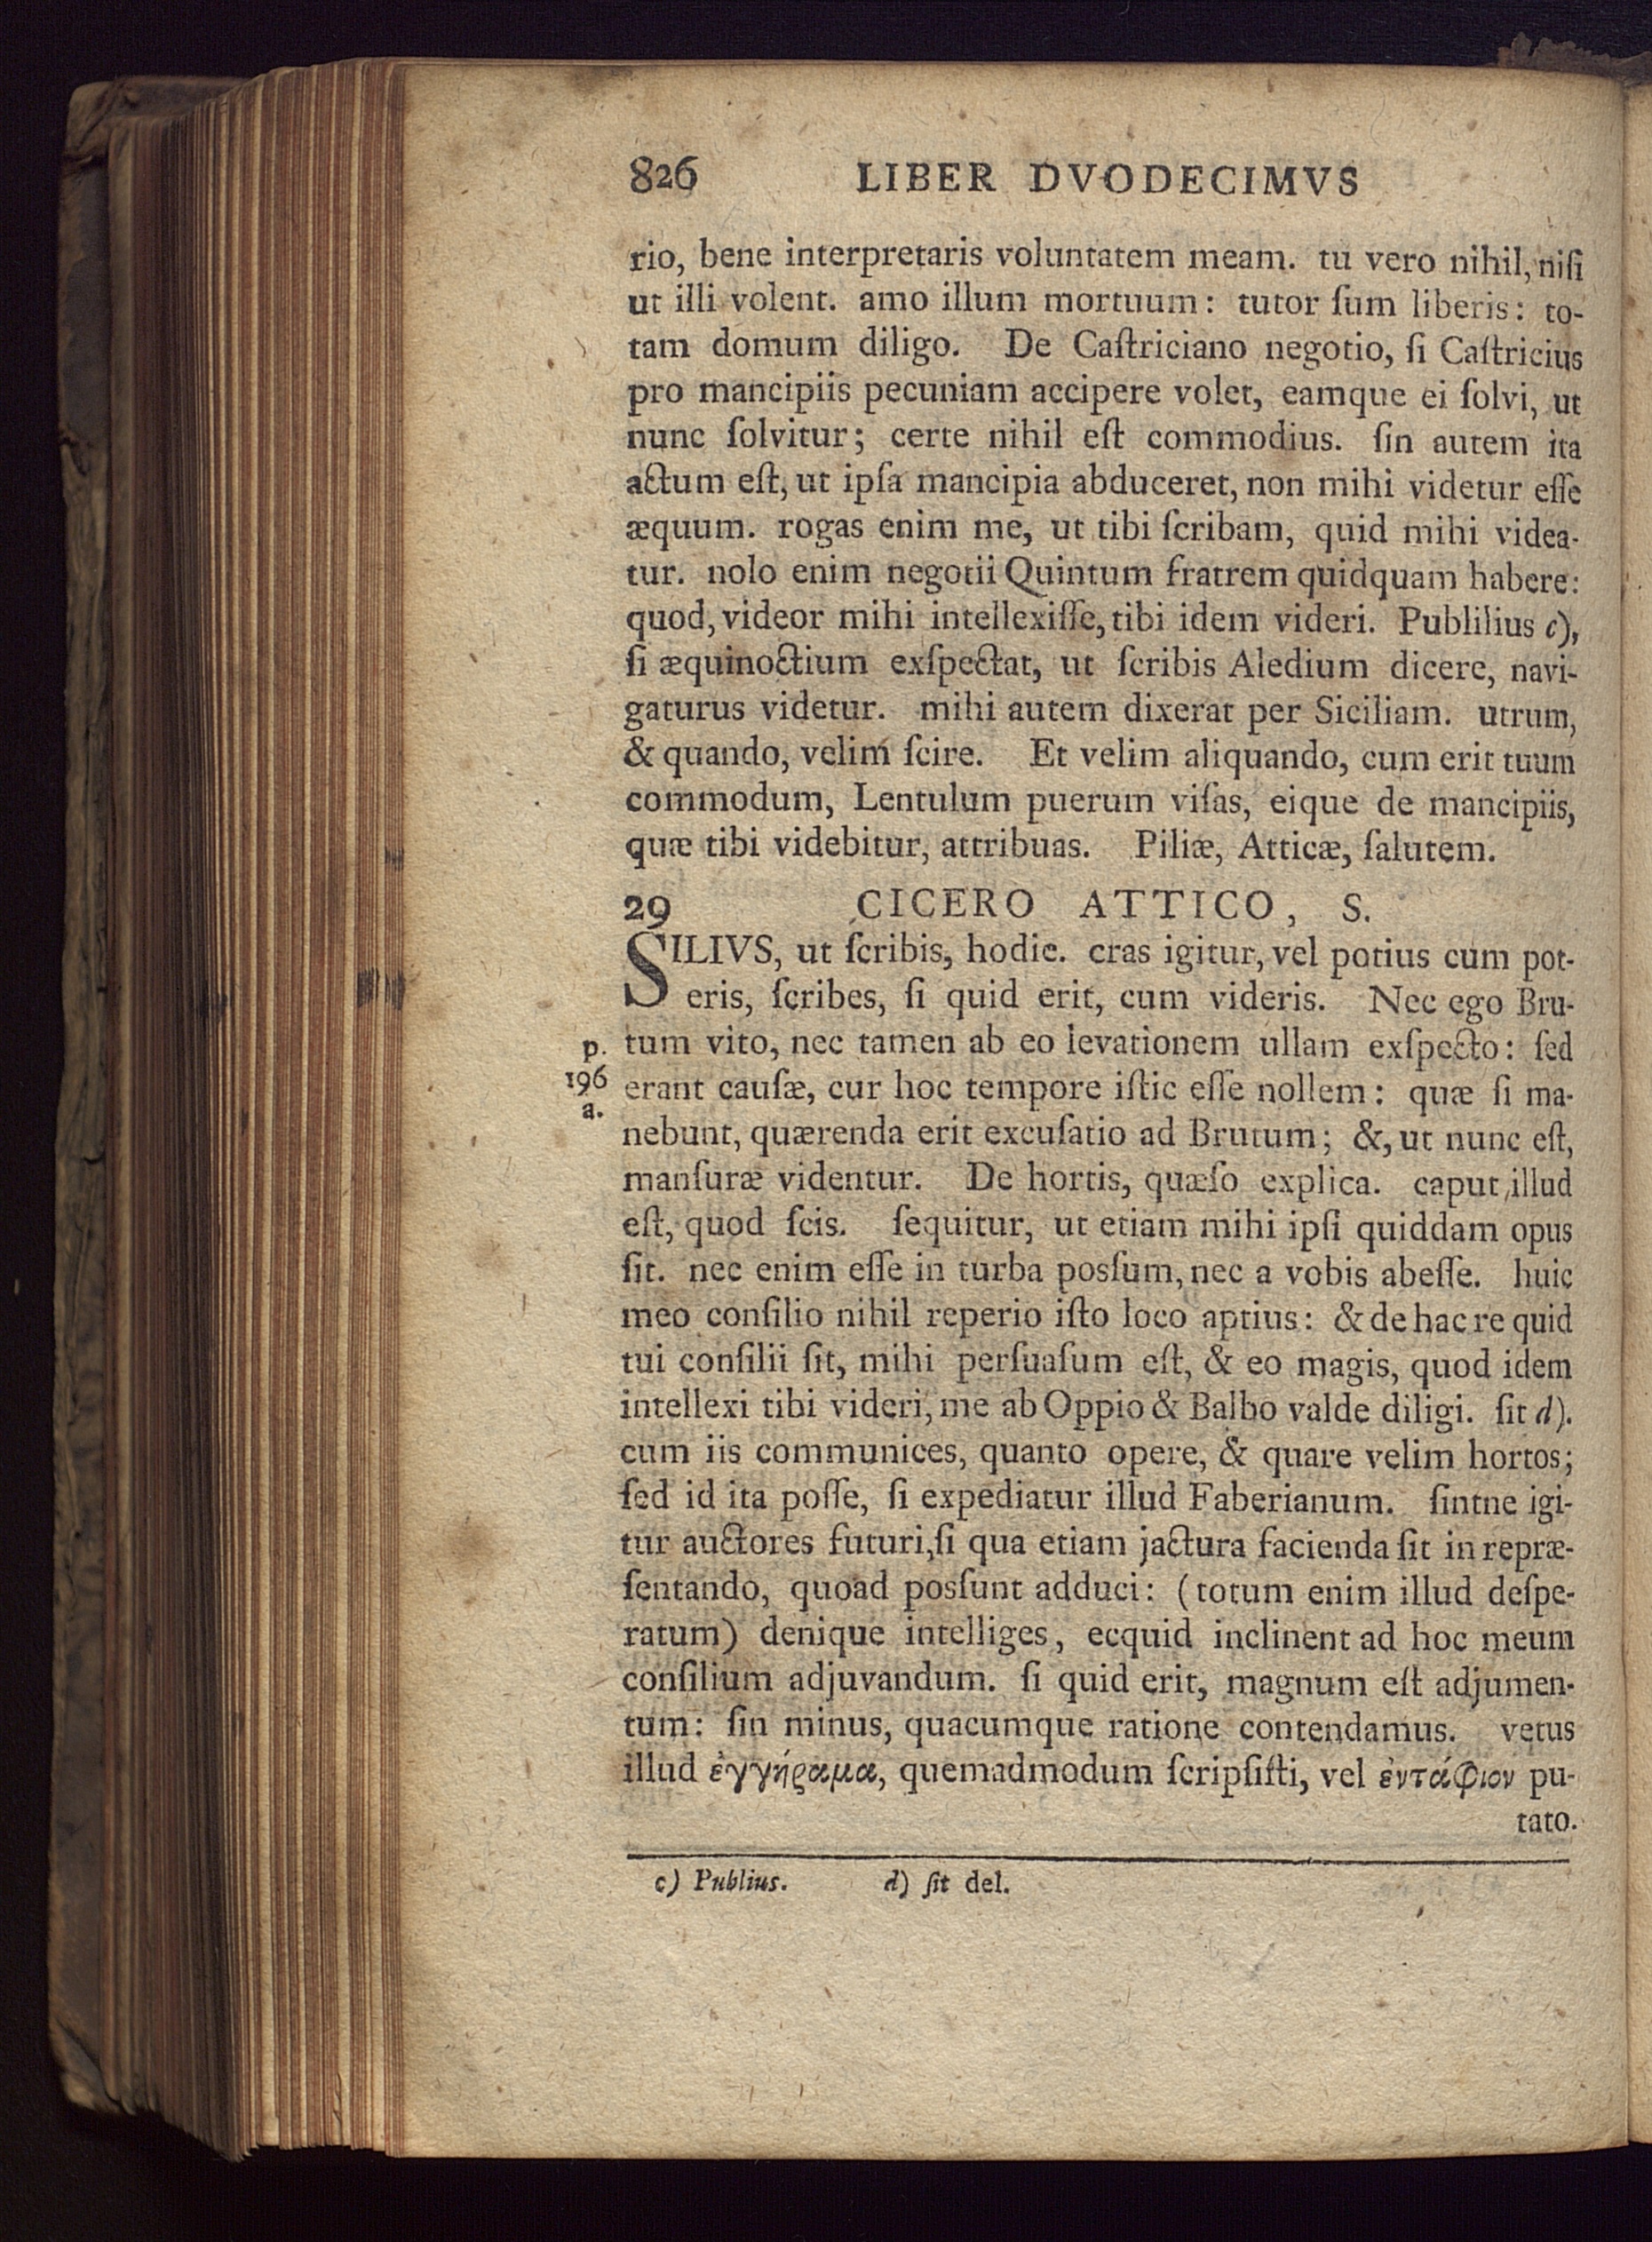 826 LIBER DVODECIMVS
rio, bene interpretaris voluntatem meam. tu vero nihil, niſi
ut illi volent. amo illum mortuum: tutor ſum liberis: to-
tam domum diligo. De Caſtriciano negotio, ſi Caſtricius
pro mancipiis pecuniam accipere volet, eamque ei ſolvi, ut
nunc ſolvitur; certe nihil eſt commodius. ſin autem ita
actum eſt, ut ipſa mancipia abduceret, non mihi videtur eſſe
æquum. rogas enim me, ut tibi ſcribam, quid mihi videa-
tur. nolo enim negotii Quintum fratrem quidquam habere:
quod, videor mihi intellexiſſe, tibi idem videri. Publilius c),
ſi æquinoctium exſpectat, ut ſcribis Aledium dicere, navi-
gaturus videtur. mihi autem dixerat per Siciliam. utrum,
& quando, velim ſcire. Et velim aliquando, cum erit tuum
commodum, Lentulum puerum viſas, eique de mancipiis,
quæ tibi videbitur, attribuas. Piliæ, Atticæ, ſalutem.
29 CICERO ATTICO, S.
SILIVS, ut ſcribis, hodie. cras igitur, vel potius cum pot-
eris, ſcribes, ſi quid erit, cum videris. Nec ego Bru-
p. tum vito, nec tamen ab eo levationem ullam exſpecto: ſed
196 erant cauſæ, cur hoc tempore iſtic eſſe nollem: quæ ſi ma-
a.
nebunt, quærenda erit excuſatio ad Brutum; &, ut nunc eſt,
manſuræ videntur. De hortis, quæſo explica. caput illud
eſt, quod ſcis. ſequitur, ut etiam mihi ipſi quiddam opus
ſit. nec enim eſſe in turba posſum, nec a vobis abeſſe. huic
meo conſilio nihil reperio iſto loco aptius: & de hac re quid
tui conſilii ſit, mihi perſuaſum eſt, & eo magis, quod idem
intellexi tibi videri, me ab Oppio & Balbo valde diligi. ſit d).
cum iis communices, quanto opere, & quare velim hortos;
ſed id ita poſſe, ſi expediatur illud Faberianum. ſintne igi-
tur auctores futuri, ſi qua etiam jactura facienda ſit in repræ-
ſentando, quoad posſunt adduci: (totum enim illud deſpe-
ratum) denique intelliges, ecquid inclinent ad hoc meum
conſilium adjuvandum. ſi quid erit, magnum eſt adjumen-
tum: ſin minus, quacumque ratione contendamus. vetus
illud ἐγγήραμα, quemadmodum ſcripſiſti, vel ἐντάφιον pu-
tato.
c) Publius. d) ſit del.